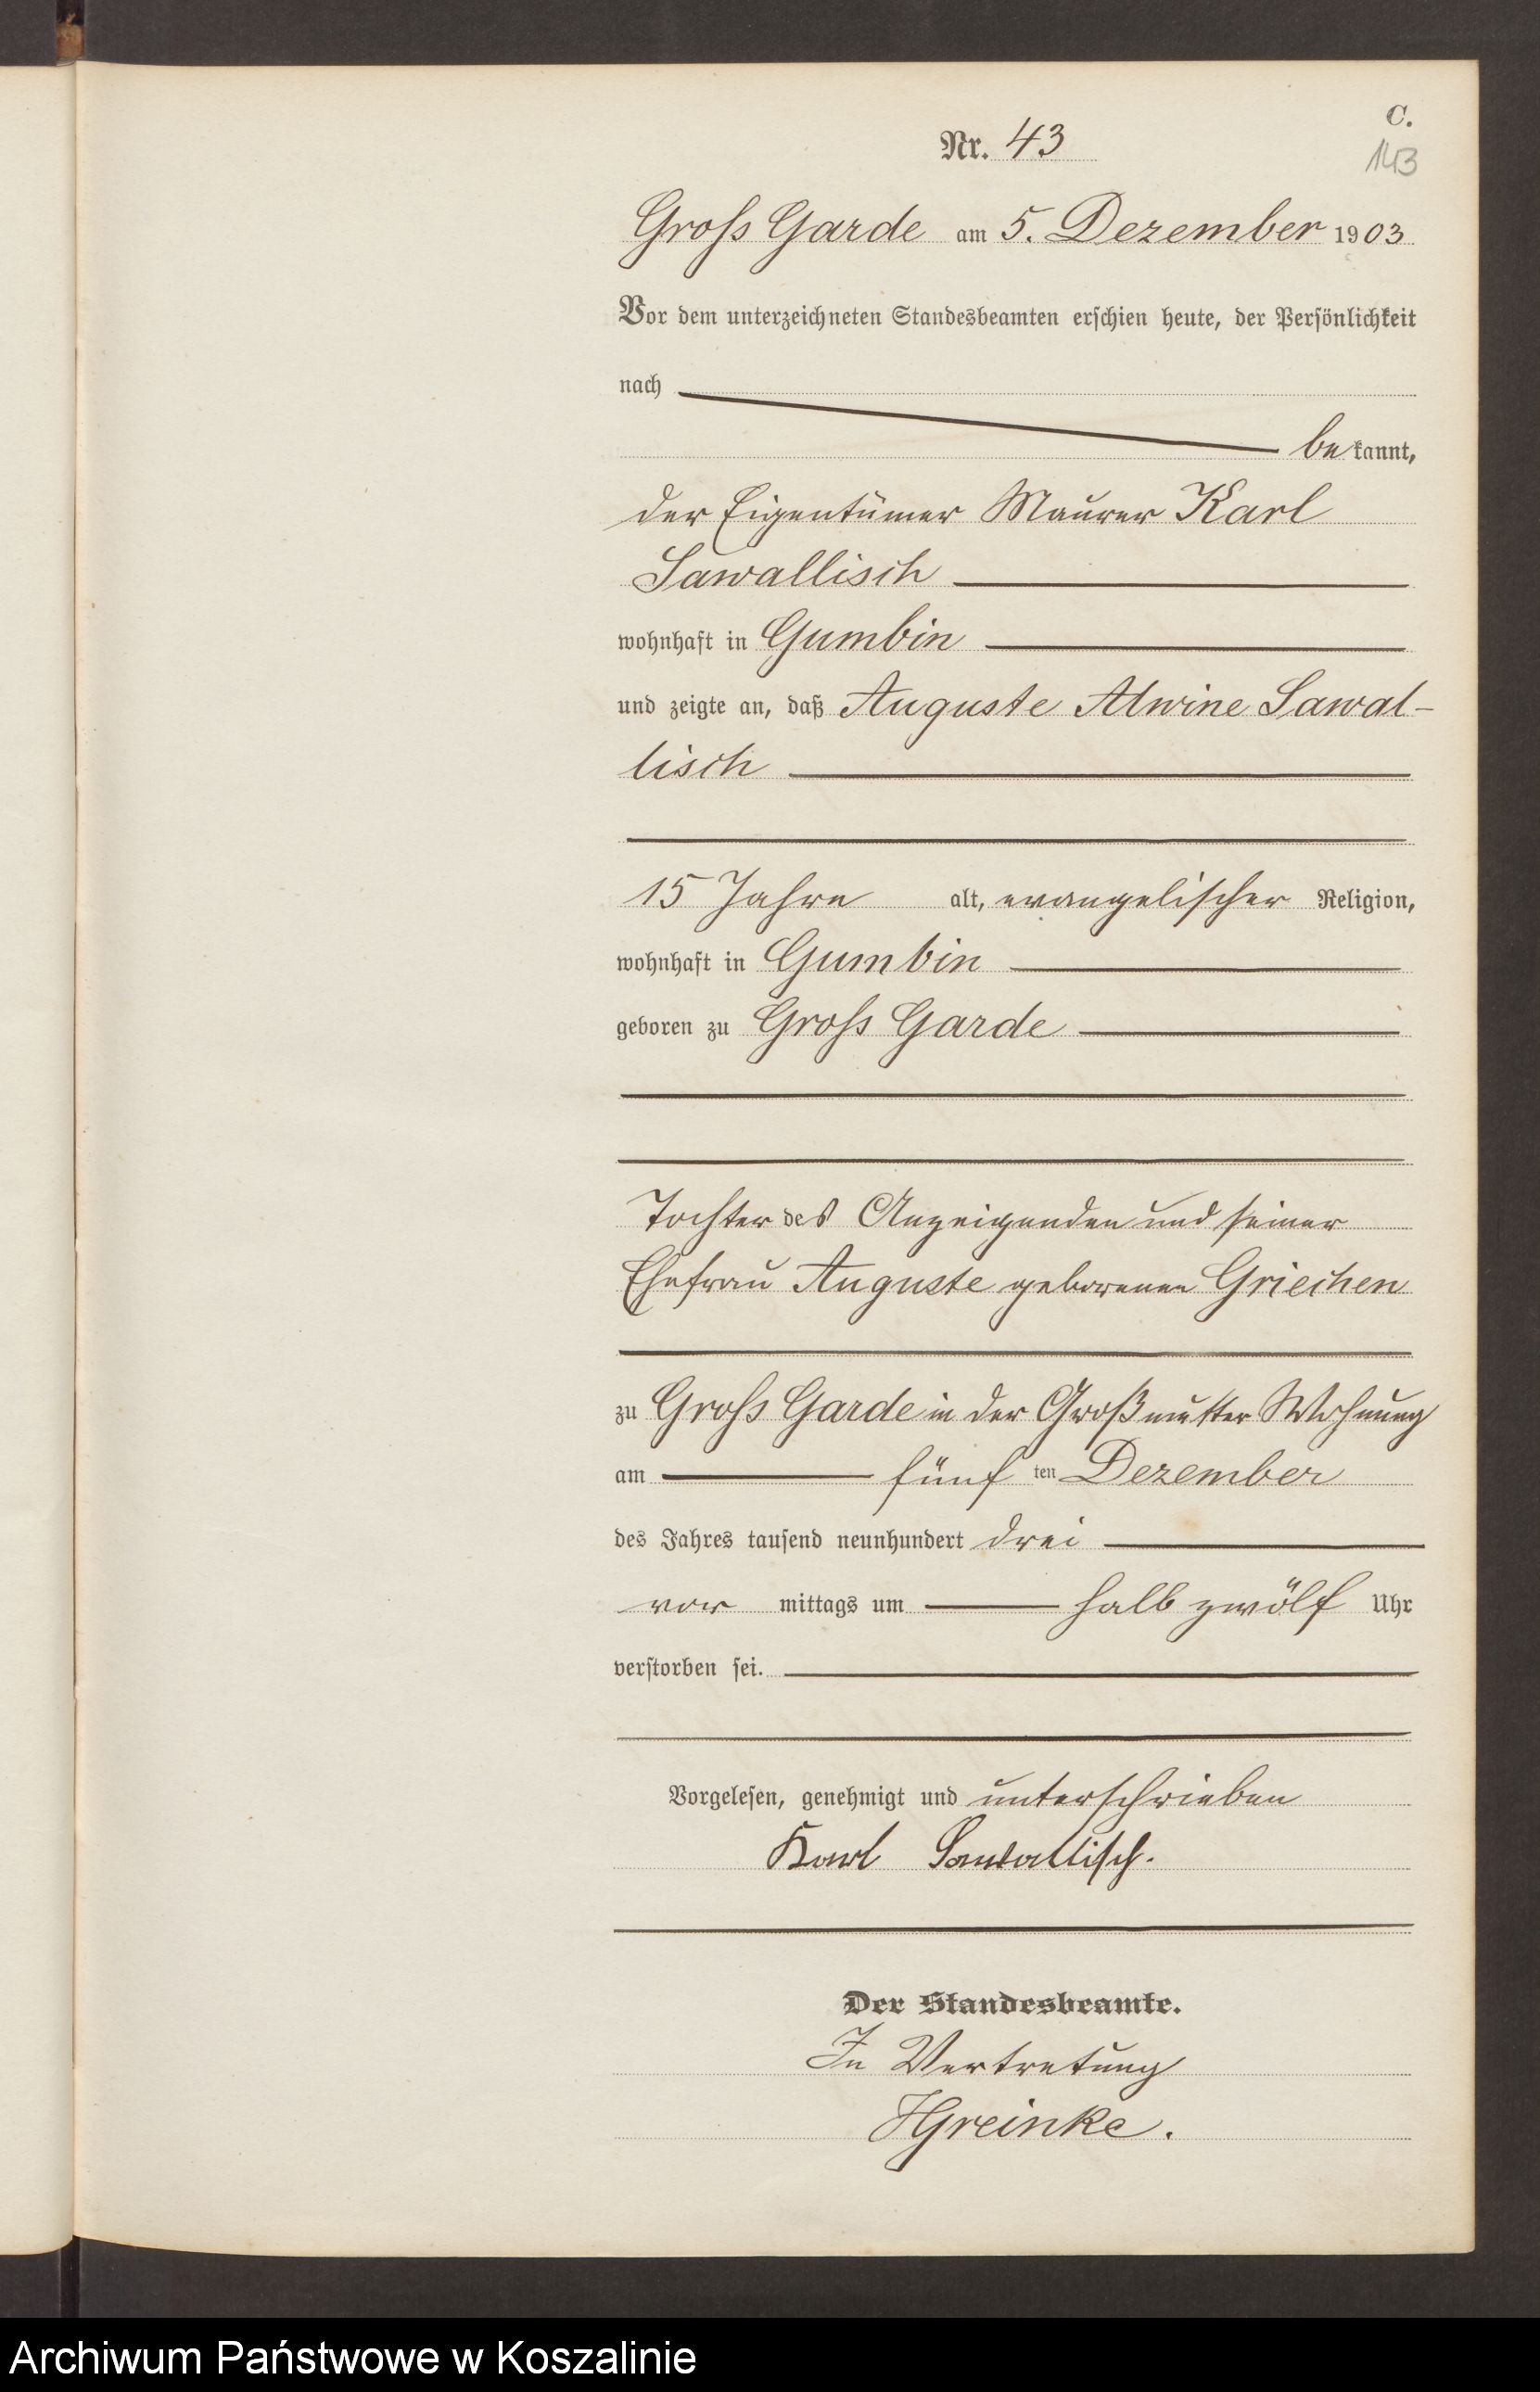 C.
Nr. 43
143
Gross Garde am 5. Dezember 1903
Vor dem unterzeichneten Standesbeamten erschien heute, der Persönlichkeit
nach
bekannt,
der Eigentümer Maurer Karl
Sawallisch
wohnhaft in Gumbin
und zeigte an, daß Auguste Alwine Sawal-
lisch
15 Jahre alt, evangelischer Religion,
wohnhaft in Gumbin
geboren zu Gross Garde
Tochter des Anzeigenden und seiner
Ehefrau Auguste geborenen Griechen
zu Gross Garde in der Großmutter Wohnung
am fünften Dezember
des Jahres tausend neunhundert drei
vor mittags um halb zwölf Uhr
verstorben sei.
Vorgelesen, genehmigt und unterschrieben
Karl Sawallisch.
Der Standesbeamte.
In Vertretung
HGreinke.
Archiwum Państwowe w Koszalinie